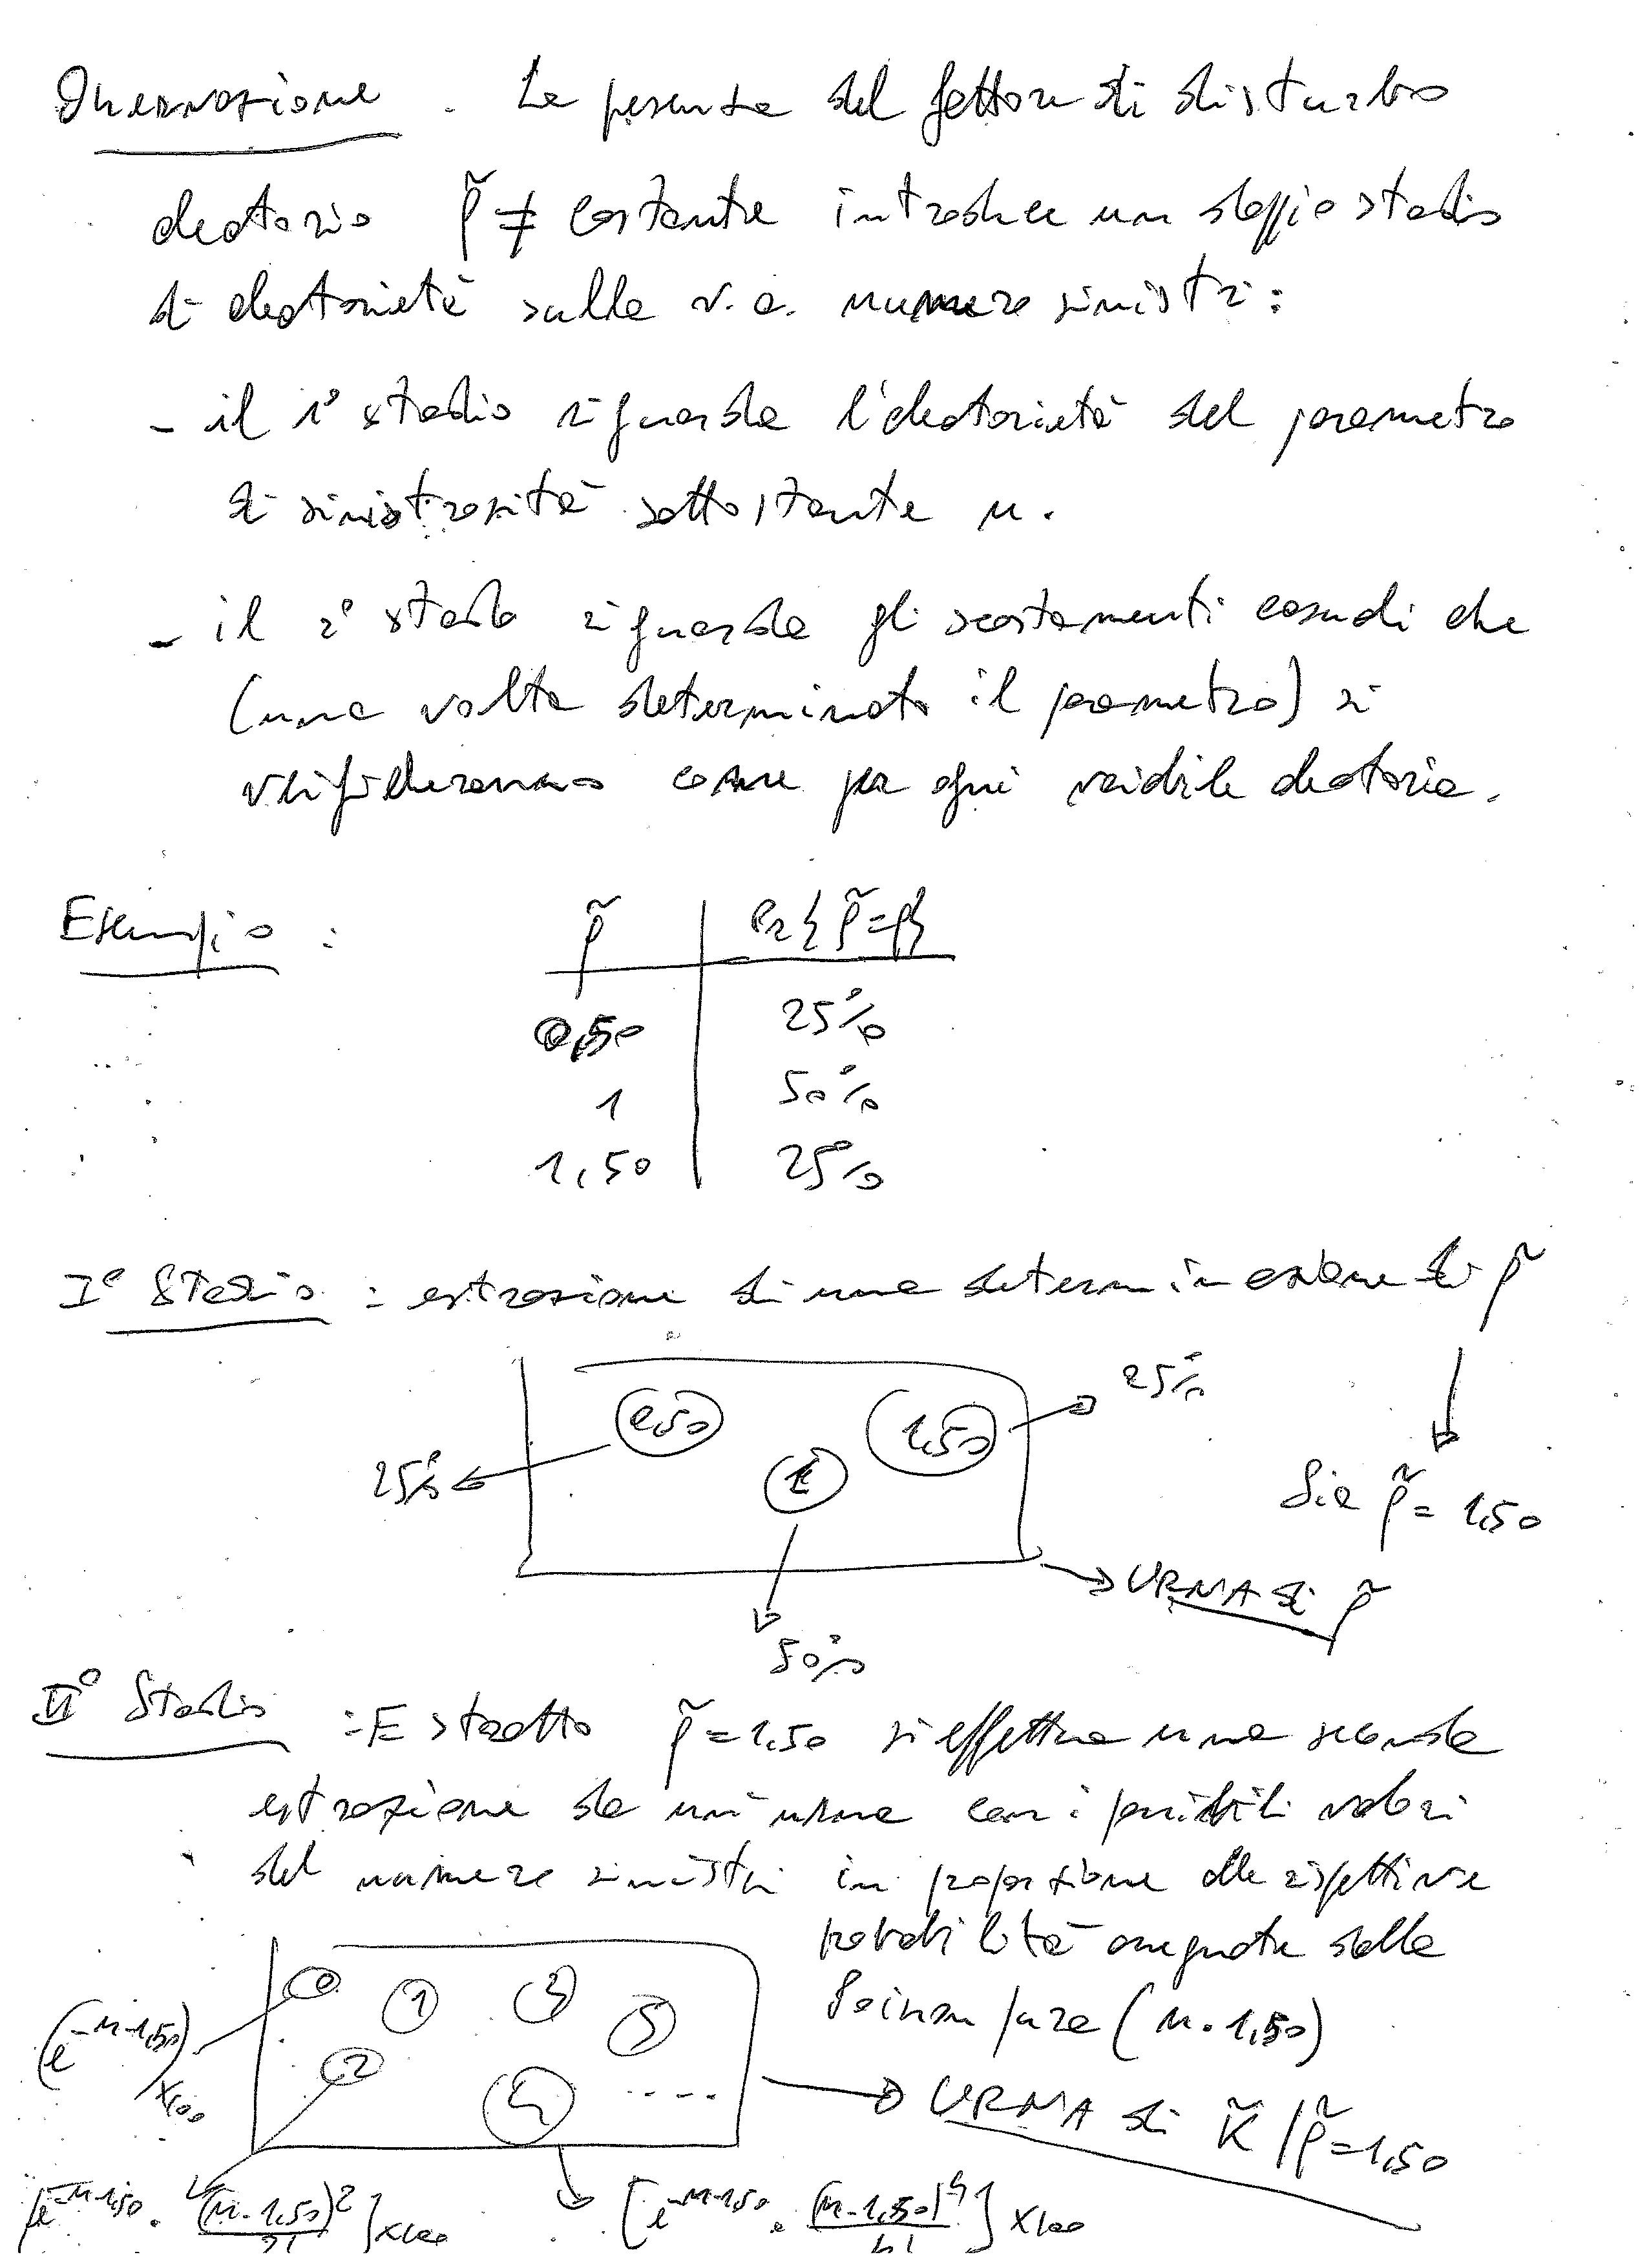 Osservazione. La presenza del fattore di disturbo
aleatorio ρ̃ ≠ costante introduce un doppio stadio
di aleatorietà sulla v.a. numero sinistri:
- il 1° stadio riguarda l'aleatorietà del parametro
di sinistrosità sottostante n.
- il 2° stadio riguarda gli scostamenti casuali che
(una volta determinato il parametro) si
verificheranno come per ogni variabile aleatoria.
Esempio :
ρ̃ | Pr{ρ̃=ρ}
0,50 | 25%
1 | 50%
1,50 | 25%
I° Stadio : estrazione di una determinazione di ρ̃
0,50 1,50 25%
25% 1
Sia ρ̃ = 1,50
URNA di ρ̃
50%
II° Stadio : Estratto ρ̃ = 1,50 si effettua una seconda
estrazione da un'urna con i possibili valori
del numero sinistri in proporzione alle rispettive
probabilità assegnate dalla
Poisson pura (n·1,50)
0 1 3 5
(e^{-n·1,50}) x100
2 4 ....
URNA di K̃ | ρ̃=1,50
[e^{-n·1,50} · (n·1,50)^2 / 2!] x100 [e^{-n·1,50} · (n·1,50)^4 / 4!] x100